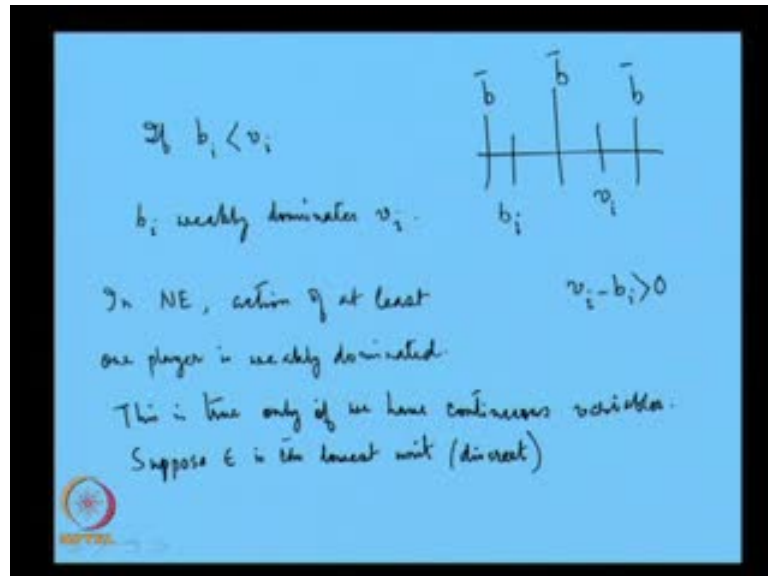 b̄ b̄ b̄
If b_i < v_i
b_i weakly dominates v_i.
b_i v_i
In NE, action of at least
v_i - b_i > 0
one player is weakly dominated.
This is true only if we have continuous variables.
Suppose ε is the lowest unit (discreet)
NPTEL